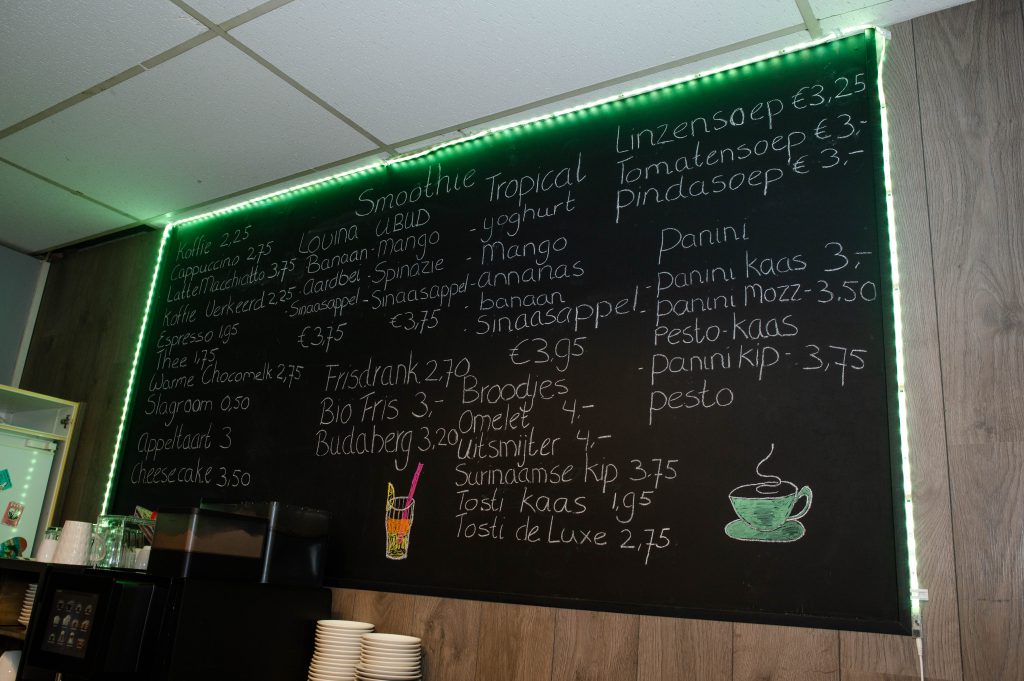 Koffie 2,25
Cappuccino 2,75
Latte Macchiatto 3,75
Koffie Verkeerd 2,25
Espresso 1,95
Thee 1,75
Warme Chocomelk 2,75
Slagroom 0,50
Appeltaart 3
Cheesecake 3,50
Smoothie
Lovina
Banaan
Aardbei
-Sinaasappel
€3,75
UBUD
-mango
-Spinazie
-Sinaasappel
€3,75
Tropical
-yoghurt
-Mango
-annanas
-banaan
-Sinaasappel
€3,95
Frisdrank 2,70
Bio Fris 3,-
Budaberg 3,20
Broodjes
Omelet 4,-
Uitsmijter 4,-
Surinaamse kip 3,75
Tosti kaas 1,95
Tosti de Luxe 2,75
Linzensoep €3,25
Tomatensoep €3,-
Pindasoep €3,-
Panini
-panini kaas 3,-
-panini Mozz-3,50
pesto-kaas
-panini kip-3,75
pesto